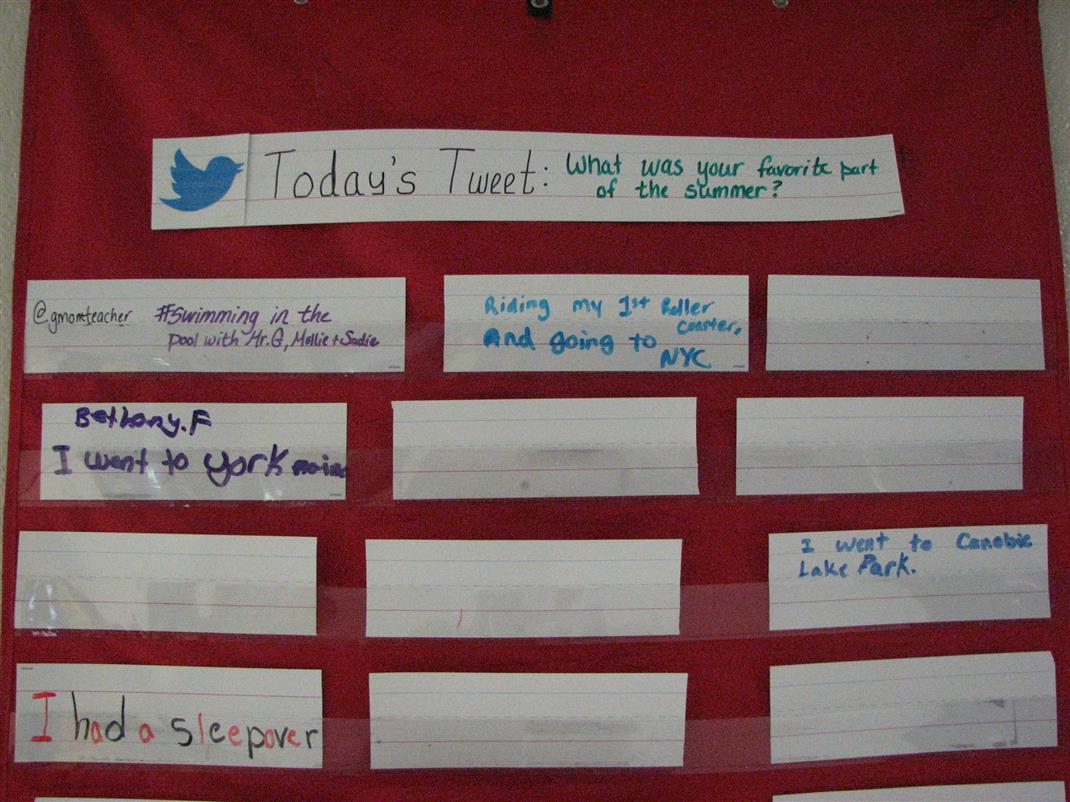 Today's Tweet: What was your favorite part
of the summer?
@gmomteacher #Swimming in the
pool with Mr.G, Mollie + Sadie
Riding my 1st Roller
coaster,
And going to
NYC
Bethany.F
I went to york maine
I went to Canobie
Lake Park.
I had a sleepover